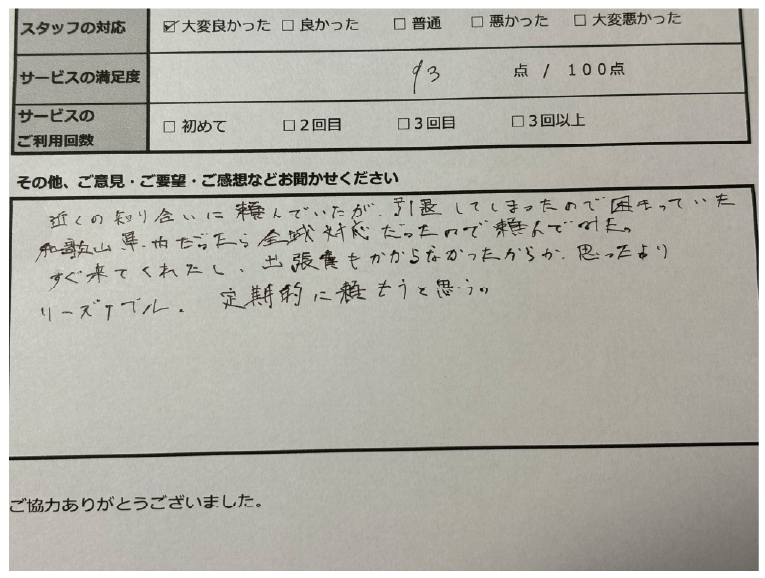 スタッフの対応 ☑ 大変良かった □ 良かった □ 普通 □ 悪かった □ 大変悪かった
サービスの満足度 93 点 / 100点
サービスの
ご利用回数 □ 初めて □ 2回目 □ 3回目 □ 3回以上
その他、ご意見・ご要望・ご感想などお聞かせください
近くの知り合いに頼んでいたが、引退してしまったので困まっていた
和歌山県内だったら全域対応だったので頼んでみた。
すぐ来てくれたし、出張費もかからなかったからか、思ったより
リーズナブル。 定期的に頼もうと思う。
ご協力ありがとうございました。